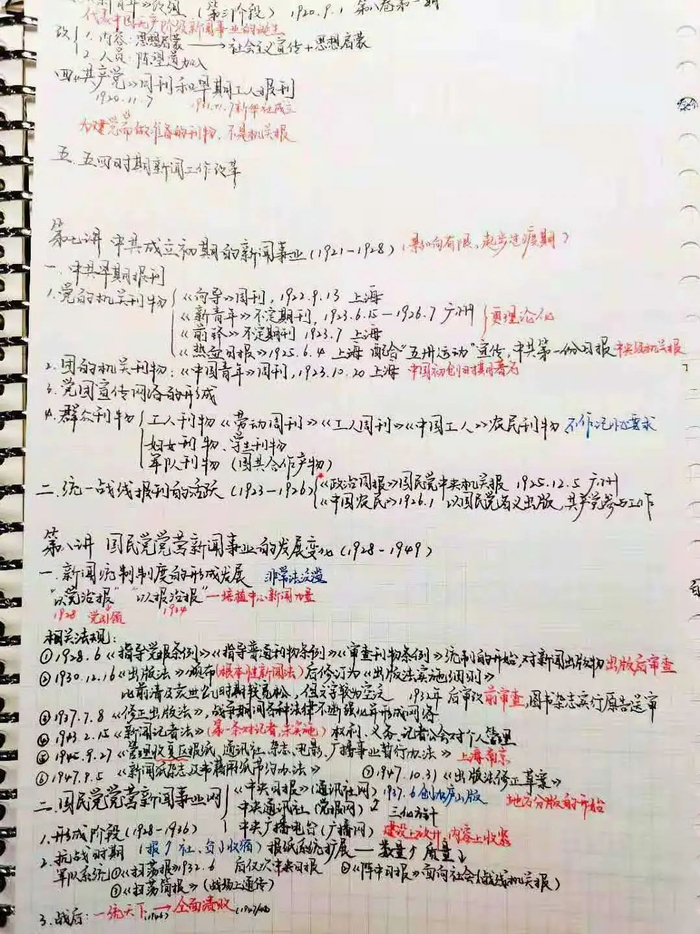 《新青年》改组(第三阶段) 1920.9.1 第八卷第一期
代表中国无产阶级新闻事业的诞生
改 1.内容:思想启蒙 → 社会主义宣传+思想启蒙
2.人员:陈望道加入
四.《共产党》月刊和早期工人报刊
1920.11.7
为建党而做准备的刊物,不是机关报
五.五四时期新闻工作改革
第七讲 中共成立初期的新闻事业(1921-1928)(影响有限,起步过渡期)
一.中共早期报刊
1.党的机关刊物 《向导》周刊,1922.9.13 上海
《新青年》不定期刊,1923.6.15-1926.7 广州 更理论化
《前锋》不定期刊 1923.7 上海
《热血日报》1925.6.4 上海 配合"五卅运动"宣传,中共第一份日报 中央级机关报
2.团的机关刊物:《中国青年》周刊,1923.10.20 上海
3.党团宣传网络的形成
4.群众刊物 工人刊物《劳动周刊》《工人周刊》《中国工人》农民刊物 不作记忆要求
妇女刊物、学生刊物
军队刊物(国共合作产物)
二.统一战线报刊的活跃(1923-1926)《政治周报》国民党中央机关报 1925.12.5 广州
《中国农民》1926.1 以国民党名义出版,共产党参与工作
第八讲 国民党党营新闻事业的发展变化(1928-1949)
一.新闻统制制度的形成发展 非常法泛滥
"以党治报" "以报治报"—培植中心新闻力量
1928 党引领 1934
相关法规:
①1928.6《指导党报条例》《指导普通刊物条例》《审查刊物条例》统制的开始,对新闻出版物出版后审查
②1930.12.16《出版法》颁布(根本性新闻法)后修订为《出版法实施细则》
比前清及袁世凯时期较宽松,但文字较为空泛 1932年后审改前审查,图书杂志实行原告送审
③1937.7.8《修正出版法》,战争期间各种法律不断强化并形成网络
④1943.2.15《新闻记者法》(第一条对记者,未实施)权利、义务、记者公会对个人管理
⑤1945.9.27《管理收复区报纸、通讯社、杂志、电影、广播事业暂行办法》上海南京
⑥1947.9.5《新闻纸杂志及书籍用纸节约办法》 ⑦1947.10.31《出版法修正草案》
二.国民党党营新闻事业网 《中央日报》 1937.6创办庐山版 地方分版的开始
中央通讯社(通讯网) 三化方针
中央广播电台(广播网) 建设上放开,内容上收紧
1.形成阶段(1928-1936)
2.抗战时期 报纸系统扩展—数量↑质量↓
军队系统①《扫荡报》1932.6 后仅次中央日报 ②《阵中日报》面向社会(战线机关报)
③《扫荡简报》(战场上通传)
3.战后:一统天下→全面溃败